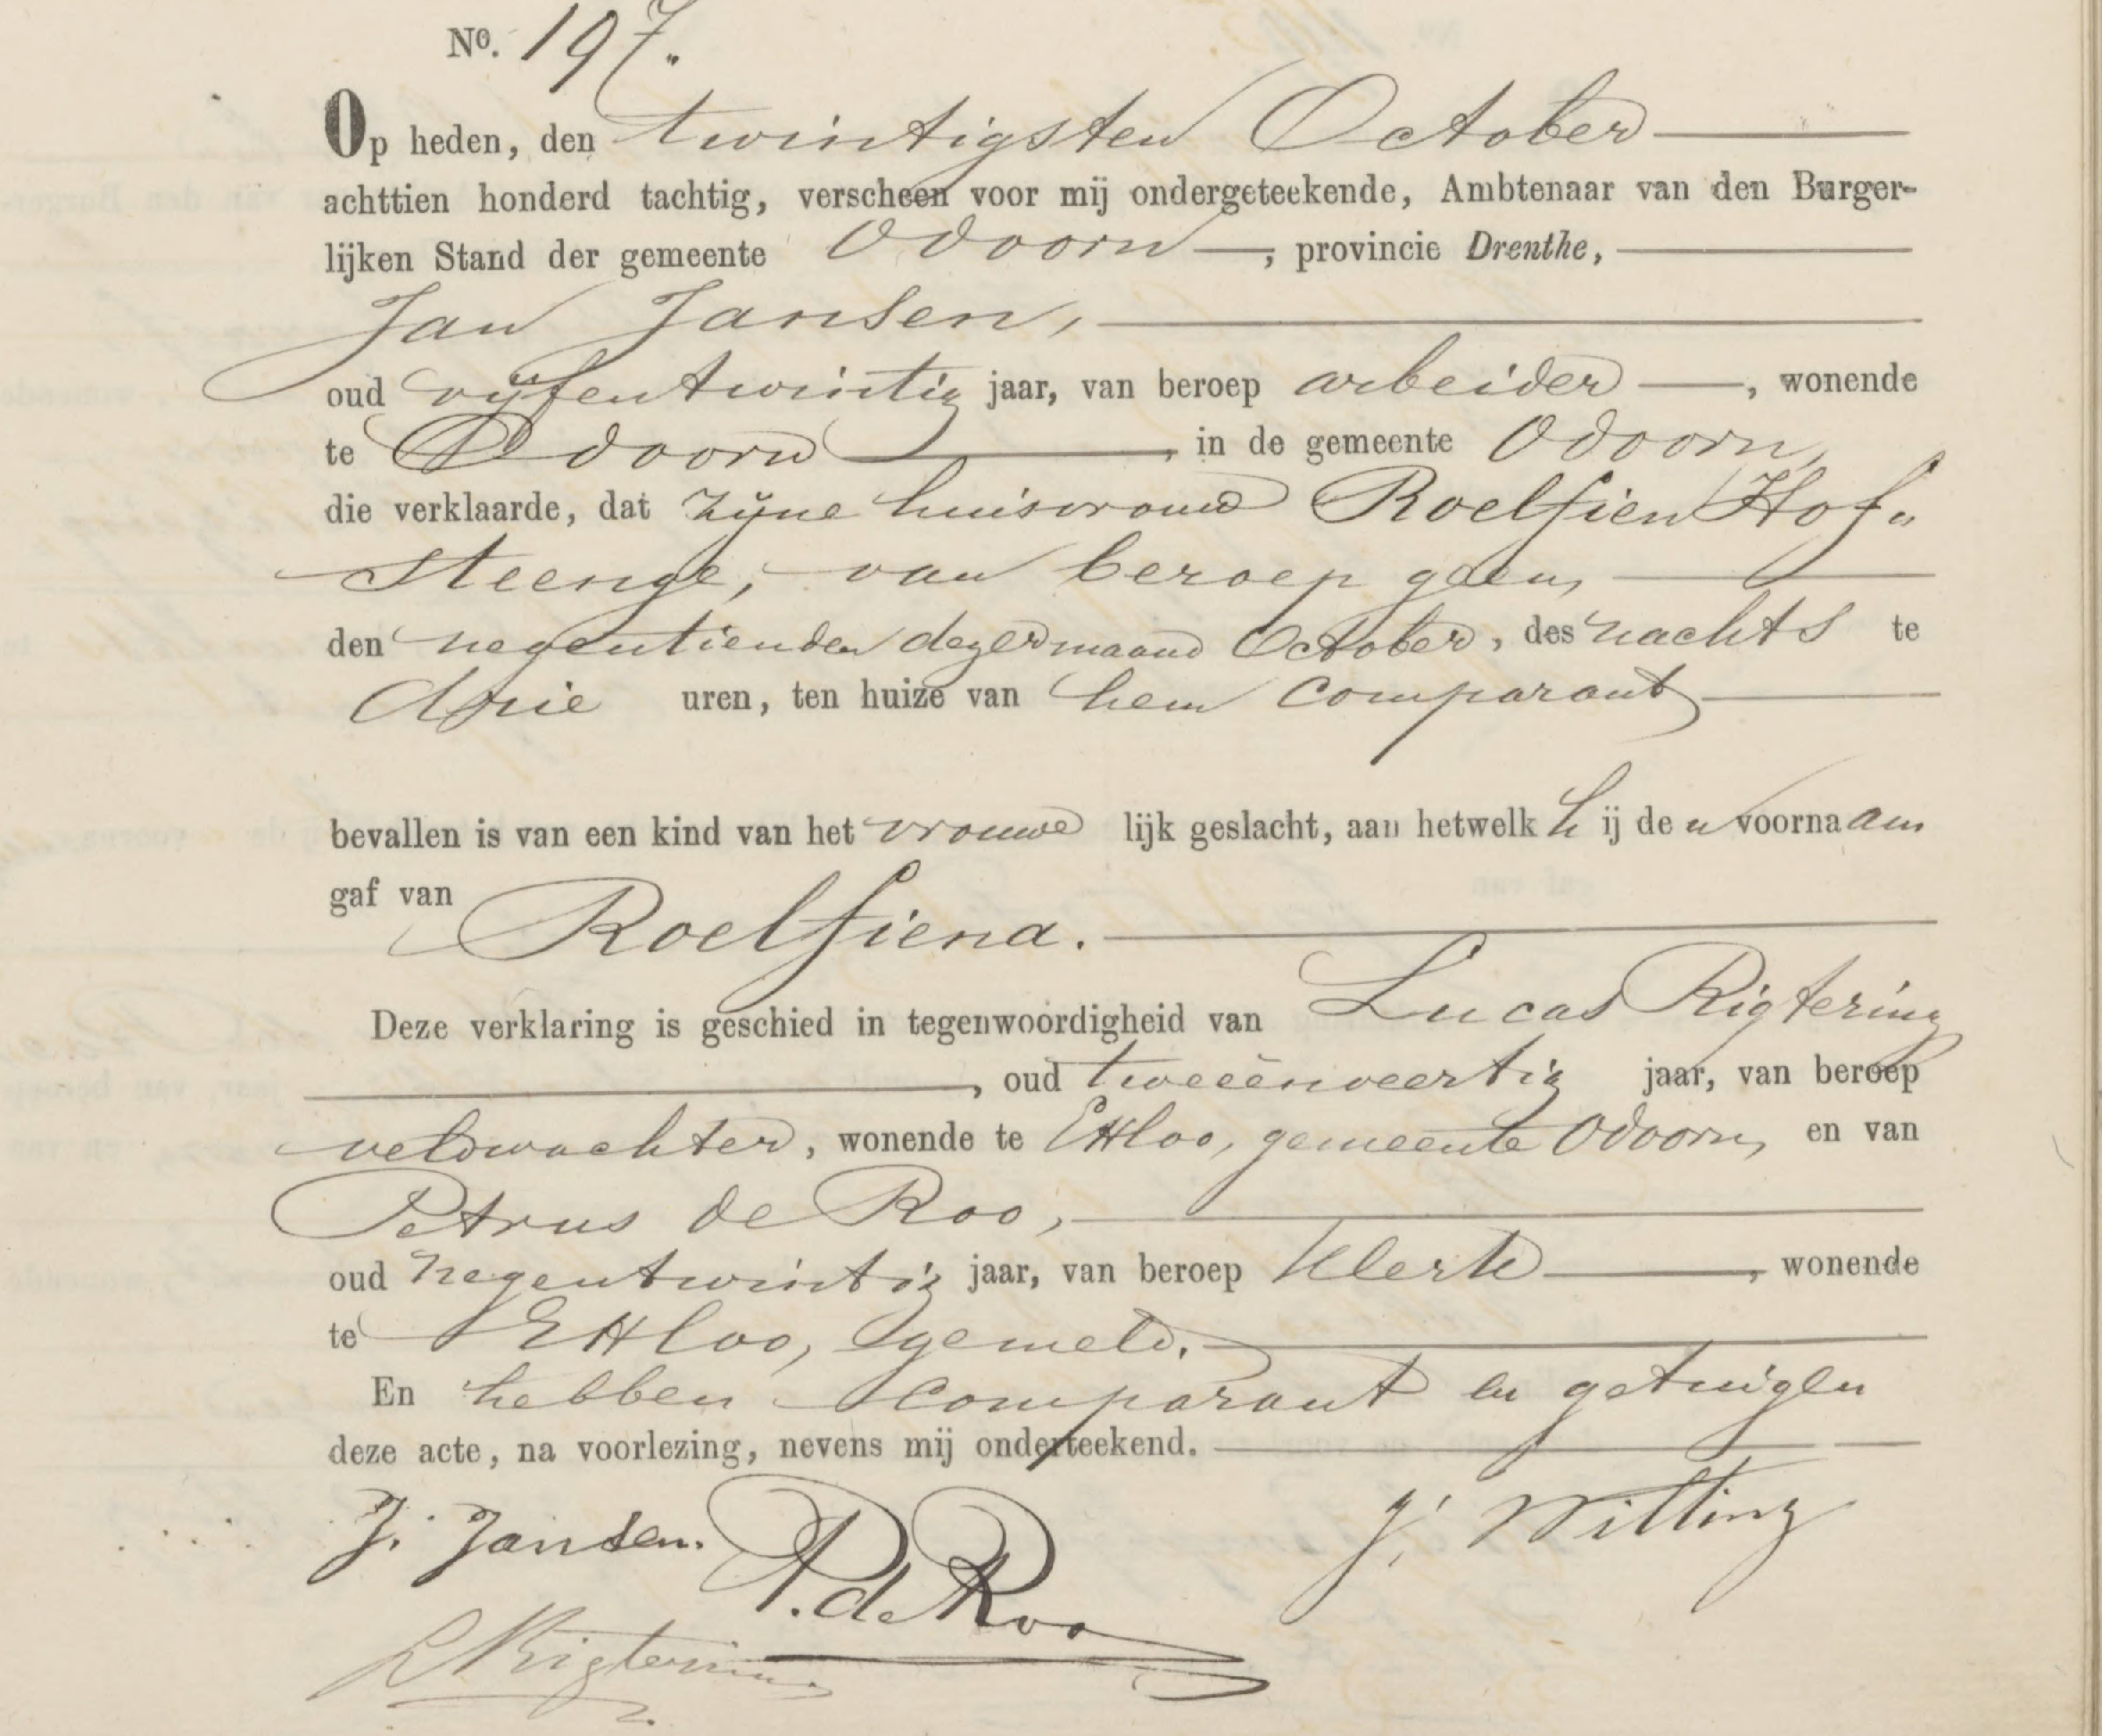 No. 197.
Op heden, den twintigsten October
achttien honderd tachtig, verscheen voor mij ondergeteekende, Ambtenaar van den Burger-
lijken Stand der gemeente Odoorn, provincie Drenthe,
Jan Jansen,
oud vijfentwintig jaar, van beroep arbeider, wonende
te Odoorn, in de gemeente Odoorn,
die verklaarde, dat zijne huisvrouw Roelfien Hof„
steenge, van beroep geen,
den negentienden dezer maand October, des nachts te
drie uren, ten huize van hem comparant
bevallen is van een kind van het vrouwelijk geslacht, aan hetwelk hij den voornaam
gaf van Roelfiena.
Deze verklaring is geschied in tegenwoordigheid van Lucas Rigtering
, oud tweeënveertig jaar, van beroep
veldwachter, wonende te Exloo, gemeente Odoorn, en van
Petrus de Roo,
oud negentwintig jaar, van beroep klerk, wonende
te Exloo, gemeld.
En hebben comparant en getuigen
deze acte, na voorlezing, nevens mij onderteekend.
J. Jansen. P. de Roo J. Willing
L Rigtering